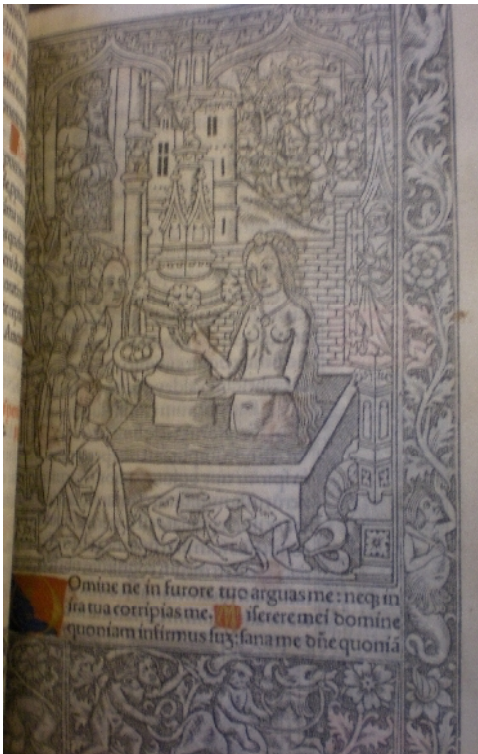 Omine ne in furore tuo arguas me: neqꝫ in
ira tua corripias me. Miserere mei domine
quoniam infirmus suꝫ: sana me dñe quoniã